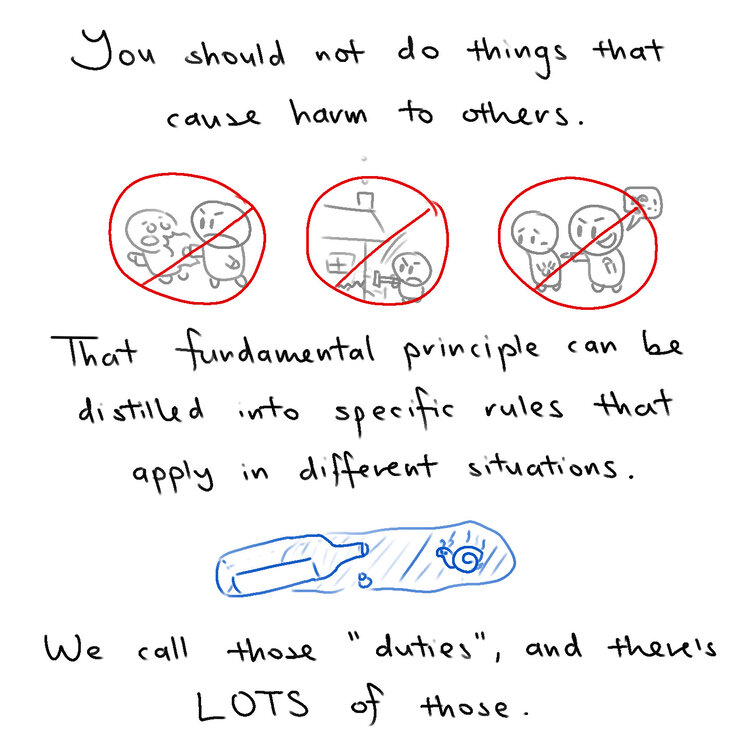 You should not do things that
cause harm to others.
That fundamental principle can be
distilled into specific rules that
apply in different situations.
We call those "duties", and there's
LOTS of those.